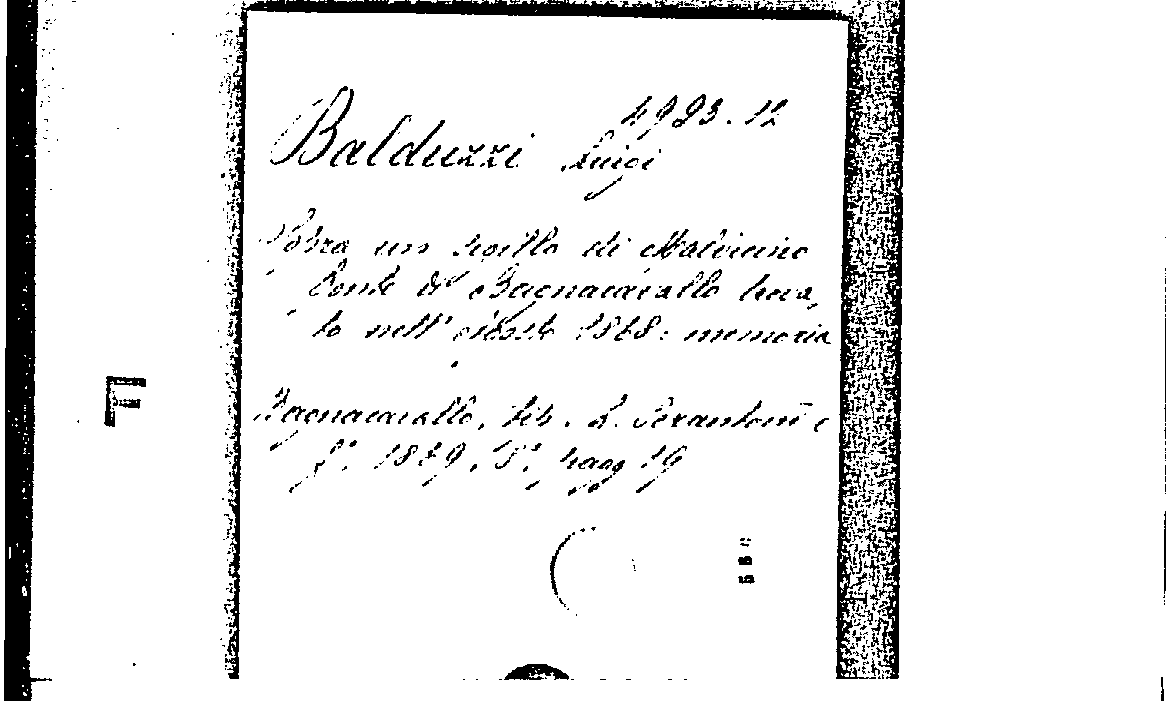 4993.12
Balduzzi Luigi
Sopra un sigillo di Malvicino
Conte di Bagnacavallo trova-
to nell' 1868: memoria
Bagnacavallo, tip. L. Serantoni e
F. 8°, pagg 19
F